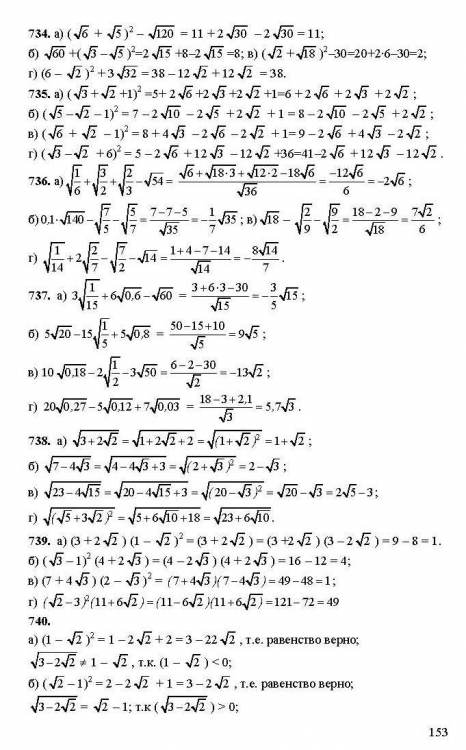 734. а) (√6 + √5)² − √120 = 11 + 2√30 − 2√30 = 11;
б) √60 + (√3 − √5)² = 2√15 + 8 − 2√15 = 8; в) (√2 + √18)² − 30 = 20 + 2·6 − 30 = 2;
г) (6 − √2)² + 3√32 = 38 − 12√2 + 12√2 = 38.
735. а) (√3 + √2 + 1)² = 5 + 2√6 + 2√3 + 2√2 + 1 = 6 + 2√6 + 2√3 + 2√2;
б) (√5 − √2 − 1)² = 7 − 2√10 − 2√5 + 2√2 + 1 = 8 − 2√10 − 2√5 + 2√2;
в) (√6 + √2 − 1)² = 8 + 4√3 − 2√6 − 2√2 + 1 = 9 − 2√6 + 4√3 − 2√2;
г) (√3 − √2 + 6)² = 5 − 2√6 + 12√3 − 12√2 + 36 = 41 − 2√6 + 12√3 − 12√2.
736. а) √(1/6) + √(3/2) + √(2/3) − √54 = (√6 + √(18·3) + √(12·2) − 18√6)/√36 = −12√6/6 = −2√6;
б) 0,1·√140 − √(7/5) − √(5/7) = (7 − 7 − 5)/√35 = −1/7 √35; в) √18 − √(2/9) − √(9/2) = (18 − 2 − 9)/√18 = 7√2/6;
г) √(1/14) + 2√(2/7) − √(7/2) − √14 = (1 + 4 − 7 − 14)/√14 = −8√14/7.
737. а) 3√(1/15) + 6√0,6 − √60 = (3 + 6·3 − 30)/√15 = −3/5 √15;
б) 5√20 − 15√(1/5) + 5√0,8 = (50 − 15 + 10)/√5 = 9√5;
в) 10√0,18 − 2√(1/2) − 3√50 = (6 − 2 − 30)/√2 = −13√2;
г) 20√0,27 − 5√0,12 + 7√0,03 = (18 − 3 + 2,1)/√3 = 5,7√3.
738. а) √(3 + 2√2) = √(1 + 2√2 + 2) = √((1 + √2)²) = 1 + √2;
б) √(7 − 4√3) = √(4 − 4√3 + 3) = √((2 + √3)²) = 2 − √3;
в) √(23 − 4√15) = √(20 − 4√15 + 3) = √((20 − √3)²) = √20 − √3 = 2√5 − 3;
г) √((√5 + 3√2)²) = √(5 + 6√10 + 18) = √(23 + 6√10).
739. а) (3 + 2√2)(1 − √2)² = (3 + 2√2) = (3 + 2√2)(3 − 2√2) = 9 − 8 = 1.
б) (√3 − 1)²(4 + 2√3) = (4 − 2√3)(4 + 2√3) = 16 − 12 = 4;
в) (7 + 4√3)(2 − √3)² = (7 + 4√3)(7 − 4√3) = 49 − 48 = 1;
г) (√2 − 3)²(11 + 6√2) = (11 − 6√2)(11 + 6√2) = 121 − 72 = 49
740.
а) (1 − √2)² = 1 − 2√2 + 2 = 3 − 22√2, т.е. равенство верно;
√(3 − 2√2) ≠ 1 − √2, т.к. (1 − √2) < 0;
б) (√2 − 1)² = 2 − 2√2 + 1 = 3 − 2√2, т.е. равенство верно;
√(3 − 2√2) = √2 − 1; т.к (√(3 − 2√2)) > 0;
153